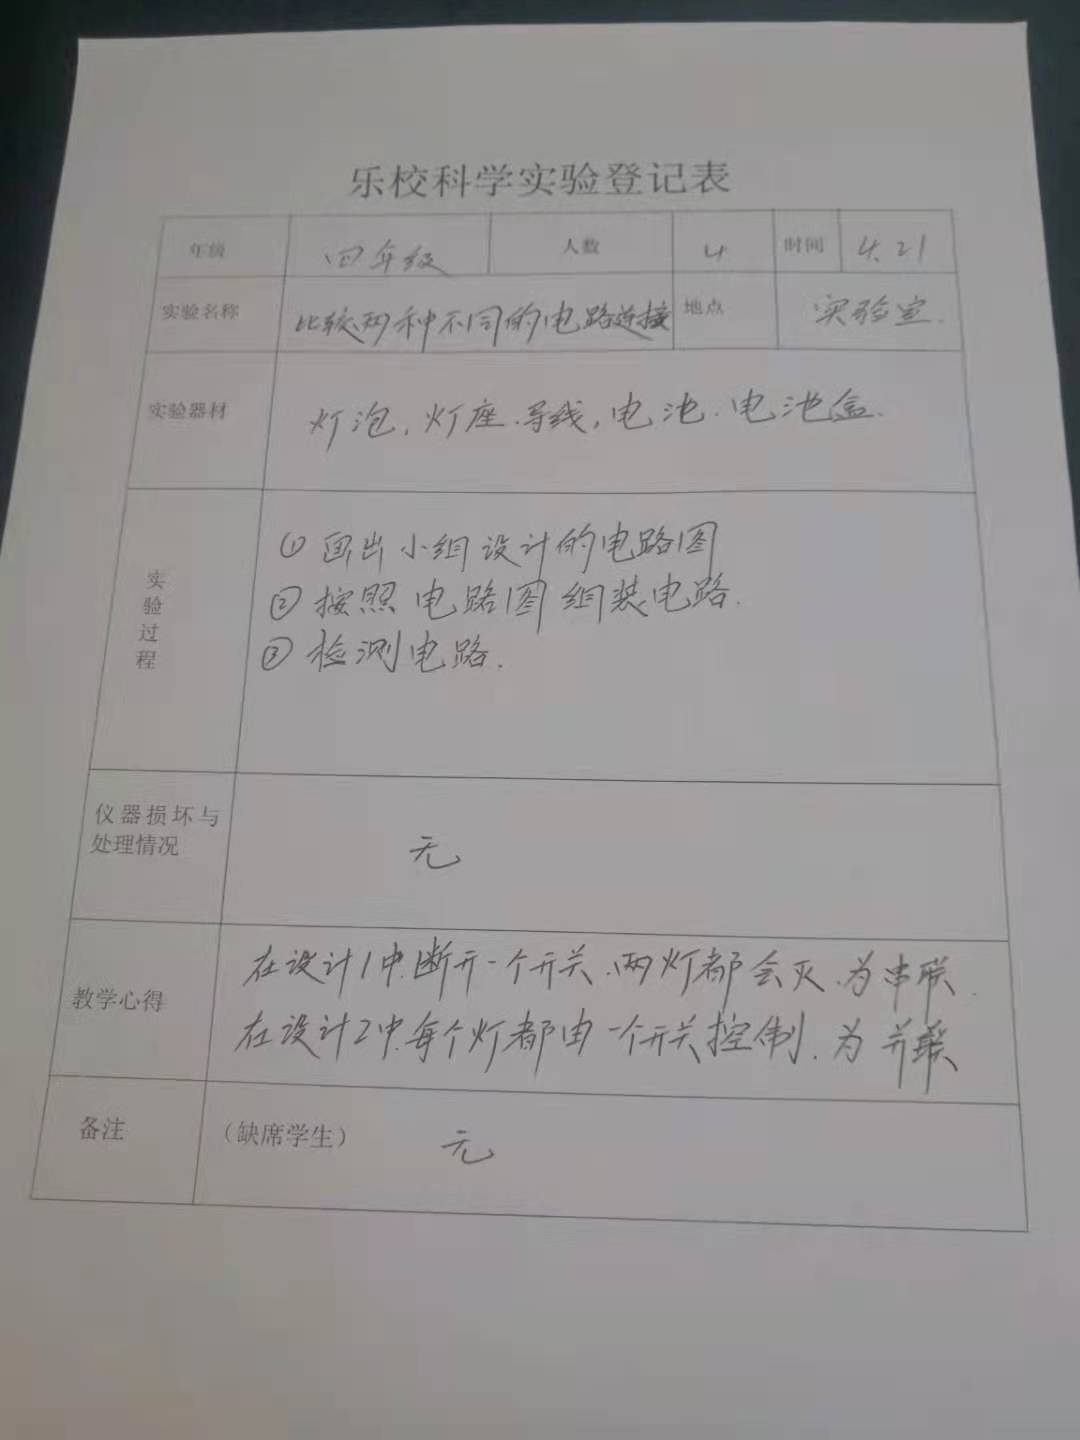 乐校科学实验登记表
年级 四年级 人数 4 时间 4.21
实验名称 比较两种不同的电路连接 地点 实验室.
实验器材 灯泡,灯座.导线,电池.电池盒.
实验过程
①画出小组设计的电路图
②按照电路图组装电路.
③检测电路.
仪器损坏与
处理情况
无
教学心得
在设计1中.断开一个开关.两灯都会灭.为串联.
在设计2中.每个灯都由一个开关控制.为并联
备注 (缺席学生) 无